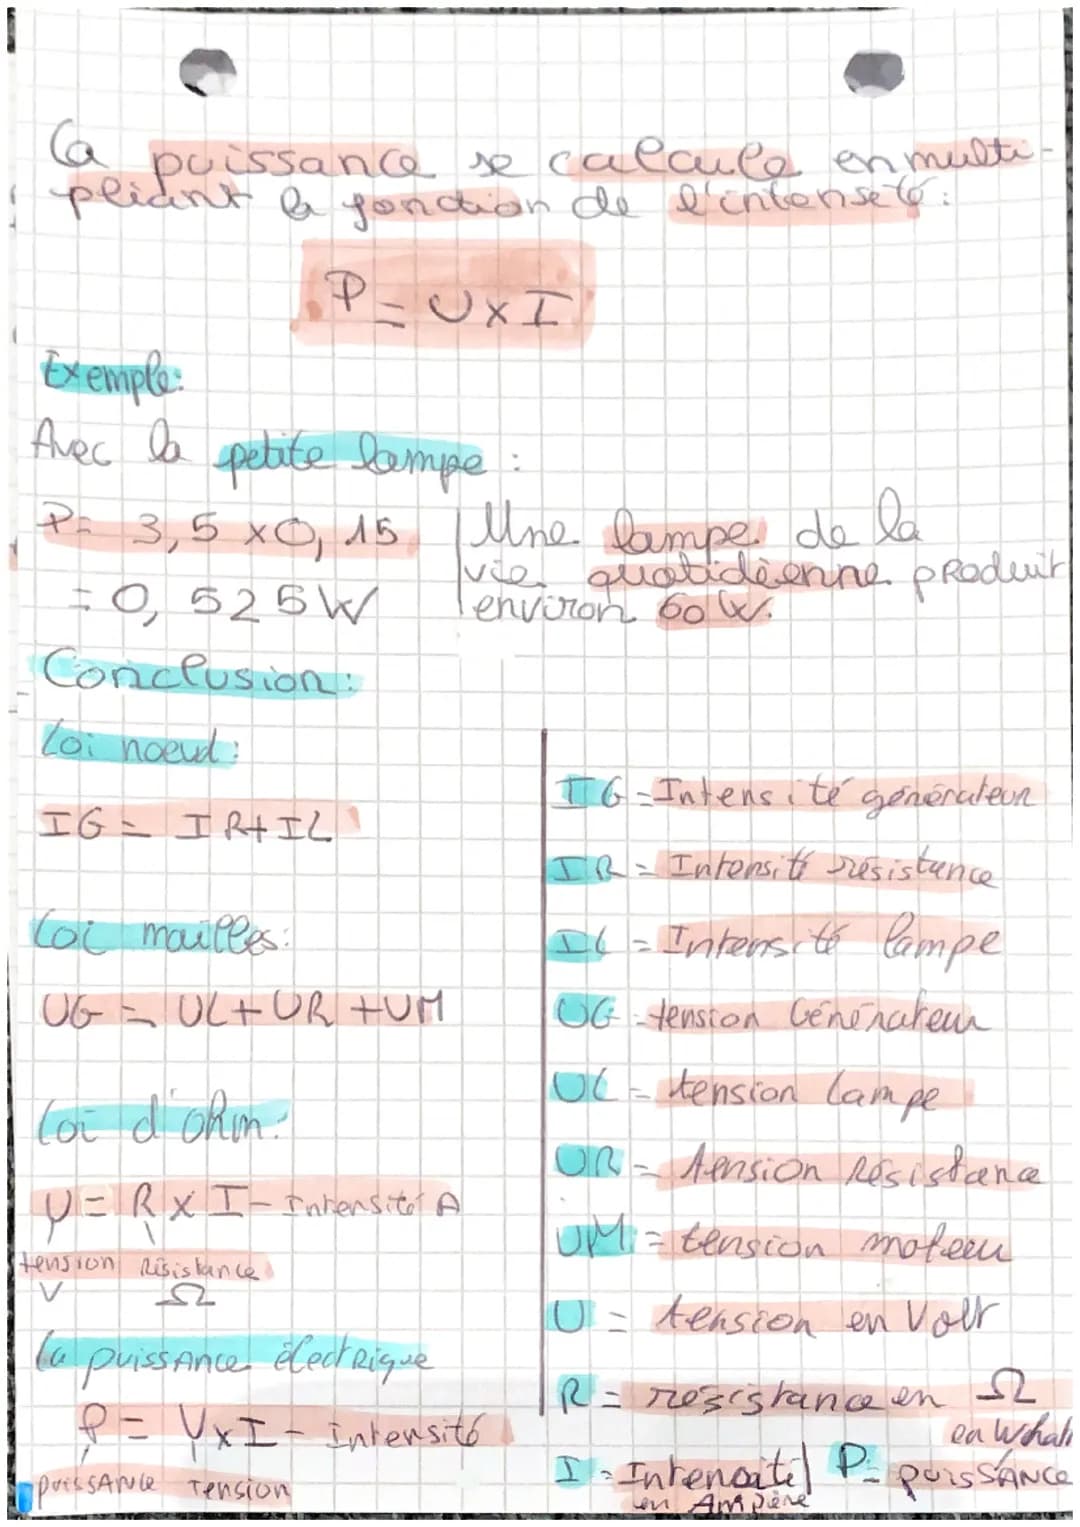 La puissance se calcule en multi-
pliant la fonction de l'intenseté :
P = U x I
Exemple:
Avec la petite lampe :
P = 3,5 x 0,15
= 0,525 W
Une lampe de la
vie quotidienne produit
environ 60 W.
Conclusion :
Loi noeud :
IG = IR + IL
Loi mailles:
UG = UL + UR + UM
Loi d'ohm:
U = R x I - Intensité A
tension Résistance
V Ω
La puissance électrique
P = U x I - Intensité
puissance Tension
IG = Intensité générateur
IR = Intensité résistance
IL = Intensité lampe
UG = tension Générateur
UL = tension lampe
UR = tension Résistance
UM = tension moteur
U = tension en Volt
R = résistance en Ω
I = Intensité
en Ampère
P = puissance
en